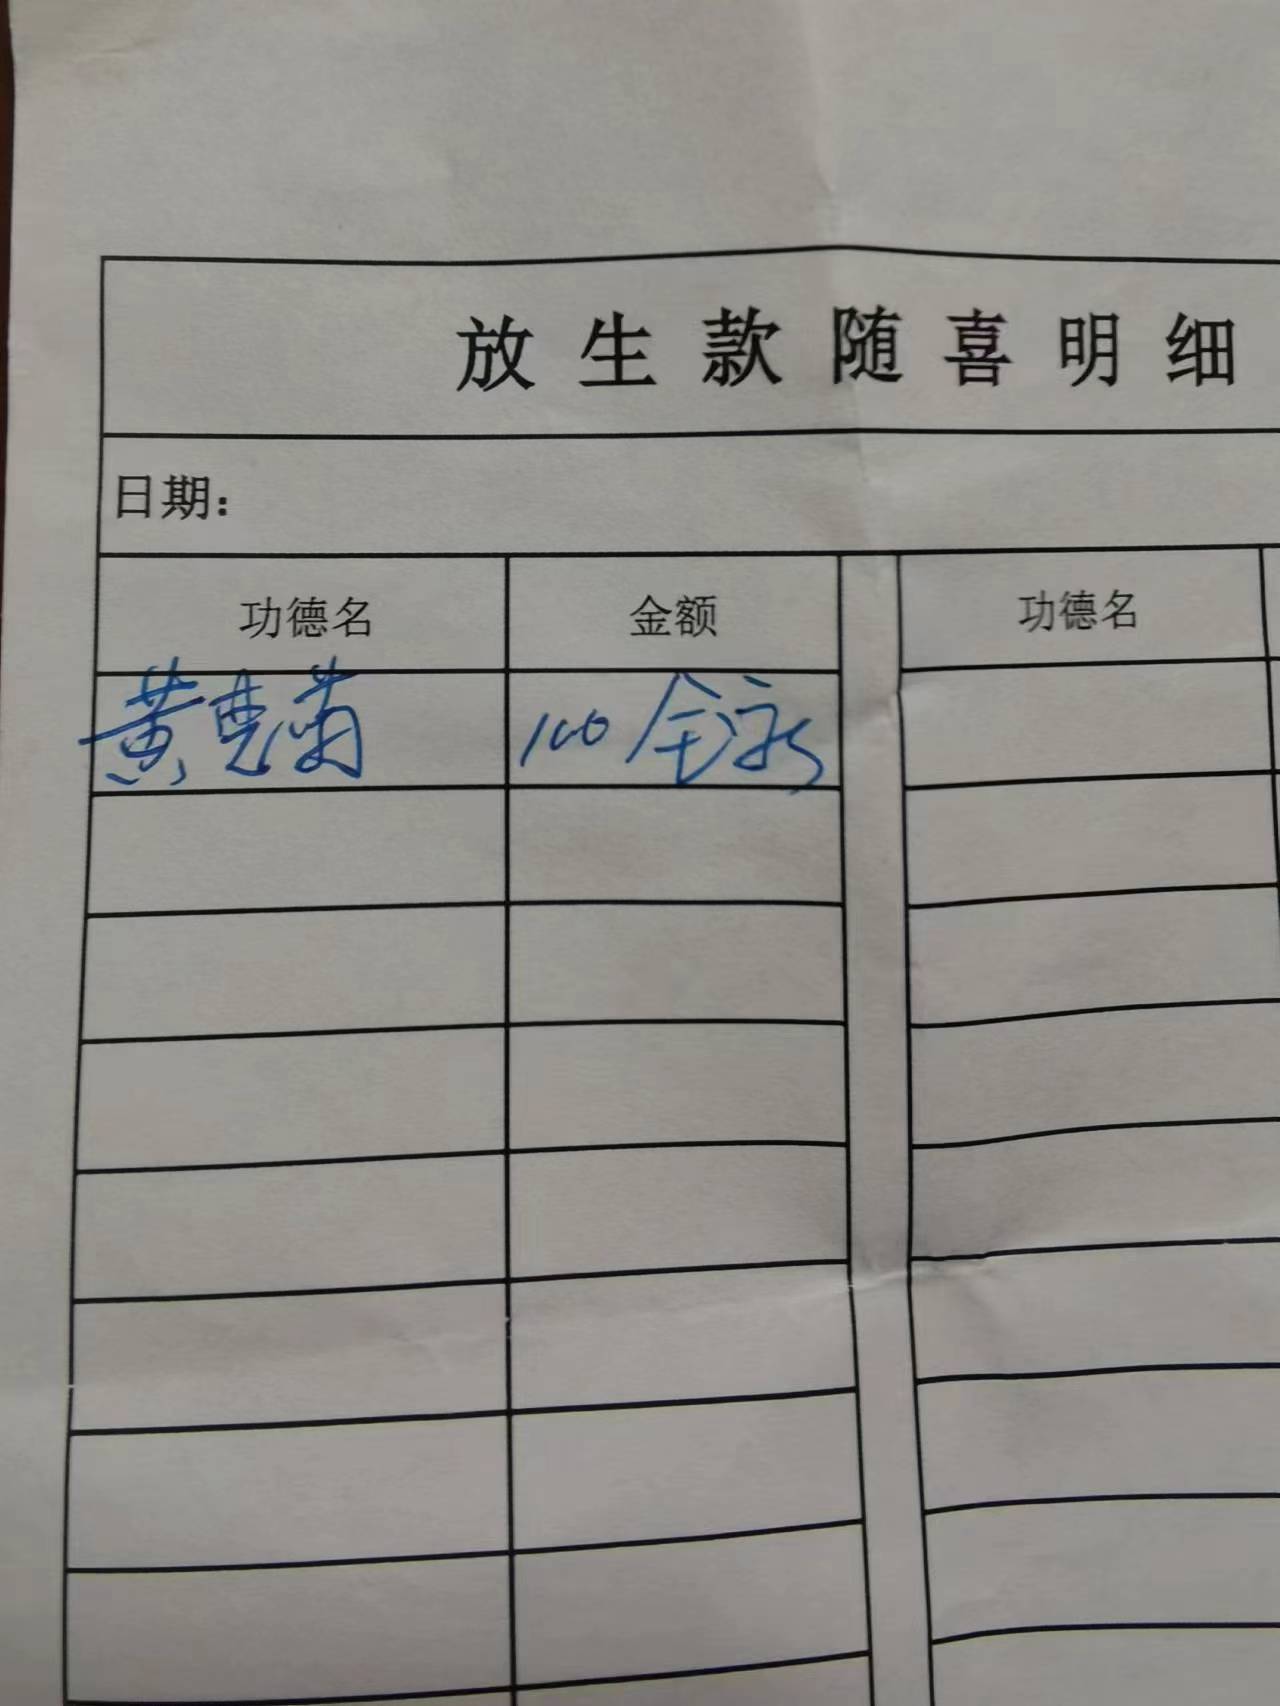 放生款随喜明细
日期：
功德名 金额 功德名
黄 100 全家